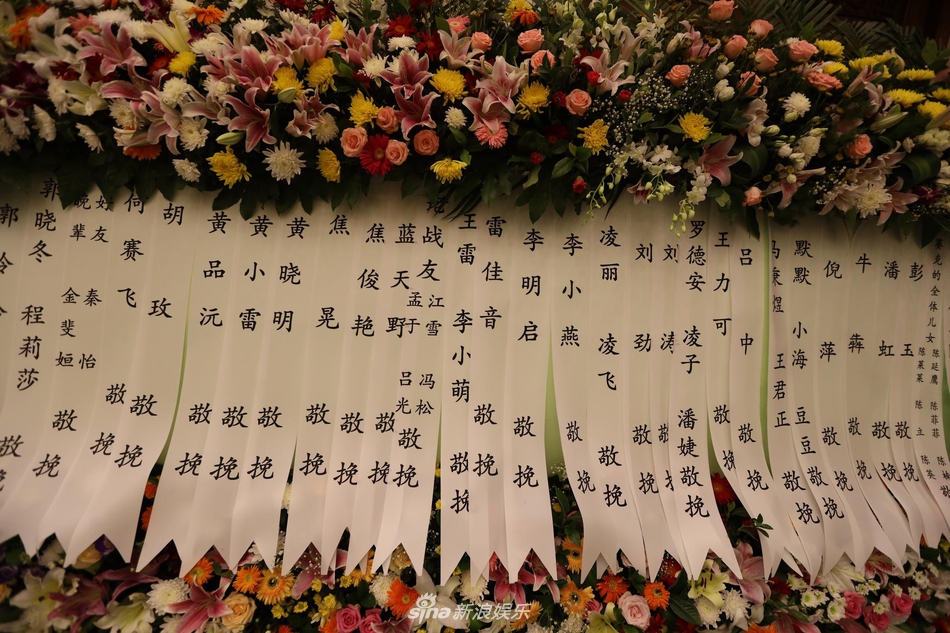 郭晓冬 程莉莎 敬挽
晚辈 好友
金斐姮 秦怡 敬挽
何赛飞 敬挽
胡玫 敬挽
黄品沅 敬挽
黄小雷 敬挽
黄晓明 敬挽
焦晃 敬挽
焦俊艳 敬挽
蓝天野 敬挽
战友
孟于 江雪
吕光 冯松
敬挽
王雷 李小萌 敬挽
雷佳音 敬挽
李明启 敬挽
李小燕 敬挽
凌丽 凌飞 敬挽
刘劲 敬挽
刘涛 敬挽
罗德安 凌子 潘婕 敬挽
王力可 敬挽
吕中 敬挽
马秉煜 王君正 敬挽
默默 小海 豆豆 敬挽
倪萍 敬挽
牛犇 敬挽
潘虹 敬挽
彭玉 敬挽
的全体儿女
陈延鹰 陈菲菲
陈莱莱 陈立 陈英
sina新浪娱乐